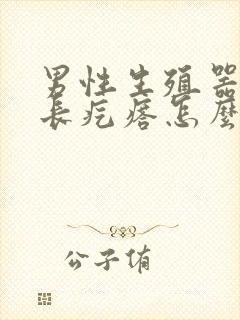 男性生殖器
長疙瘩怎麼
公子侑